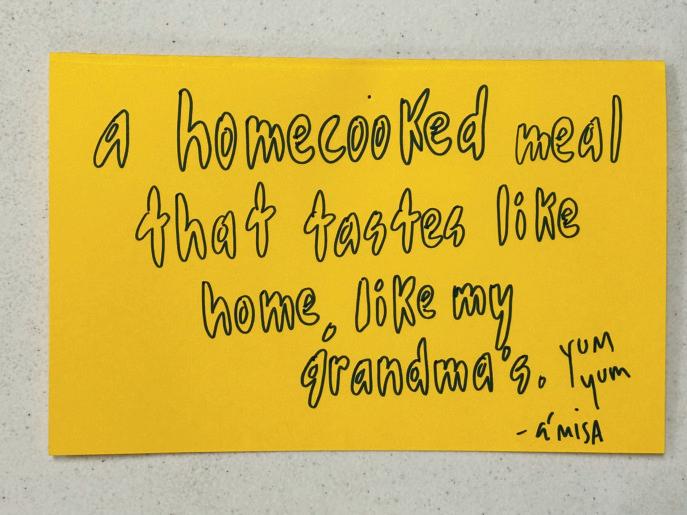 a homecooked meal
that tastes like
home, like my
grandma's. YUM
yum
- a'MiSA